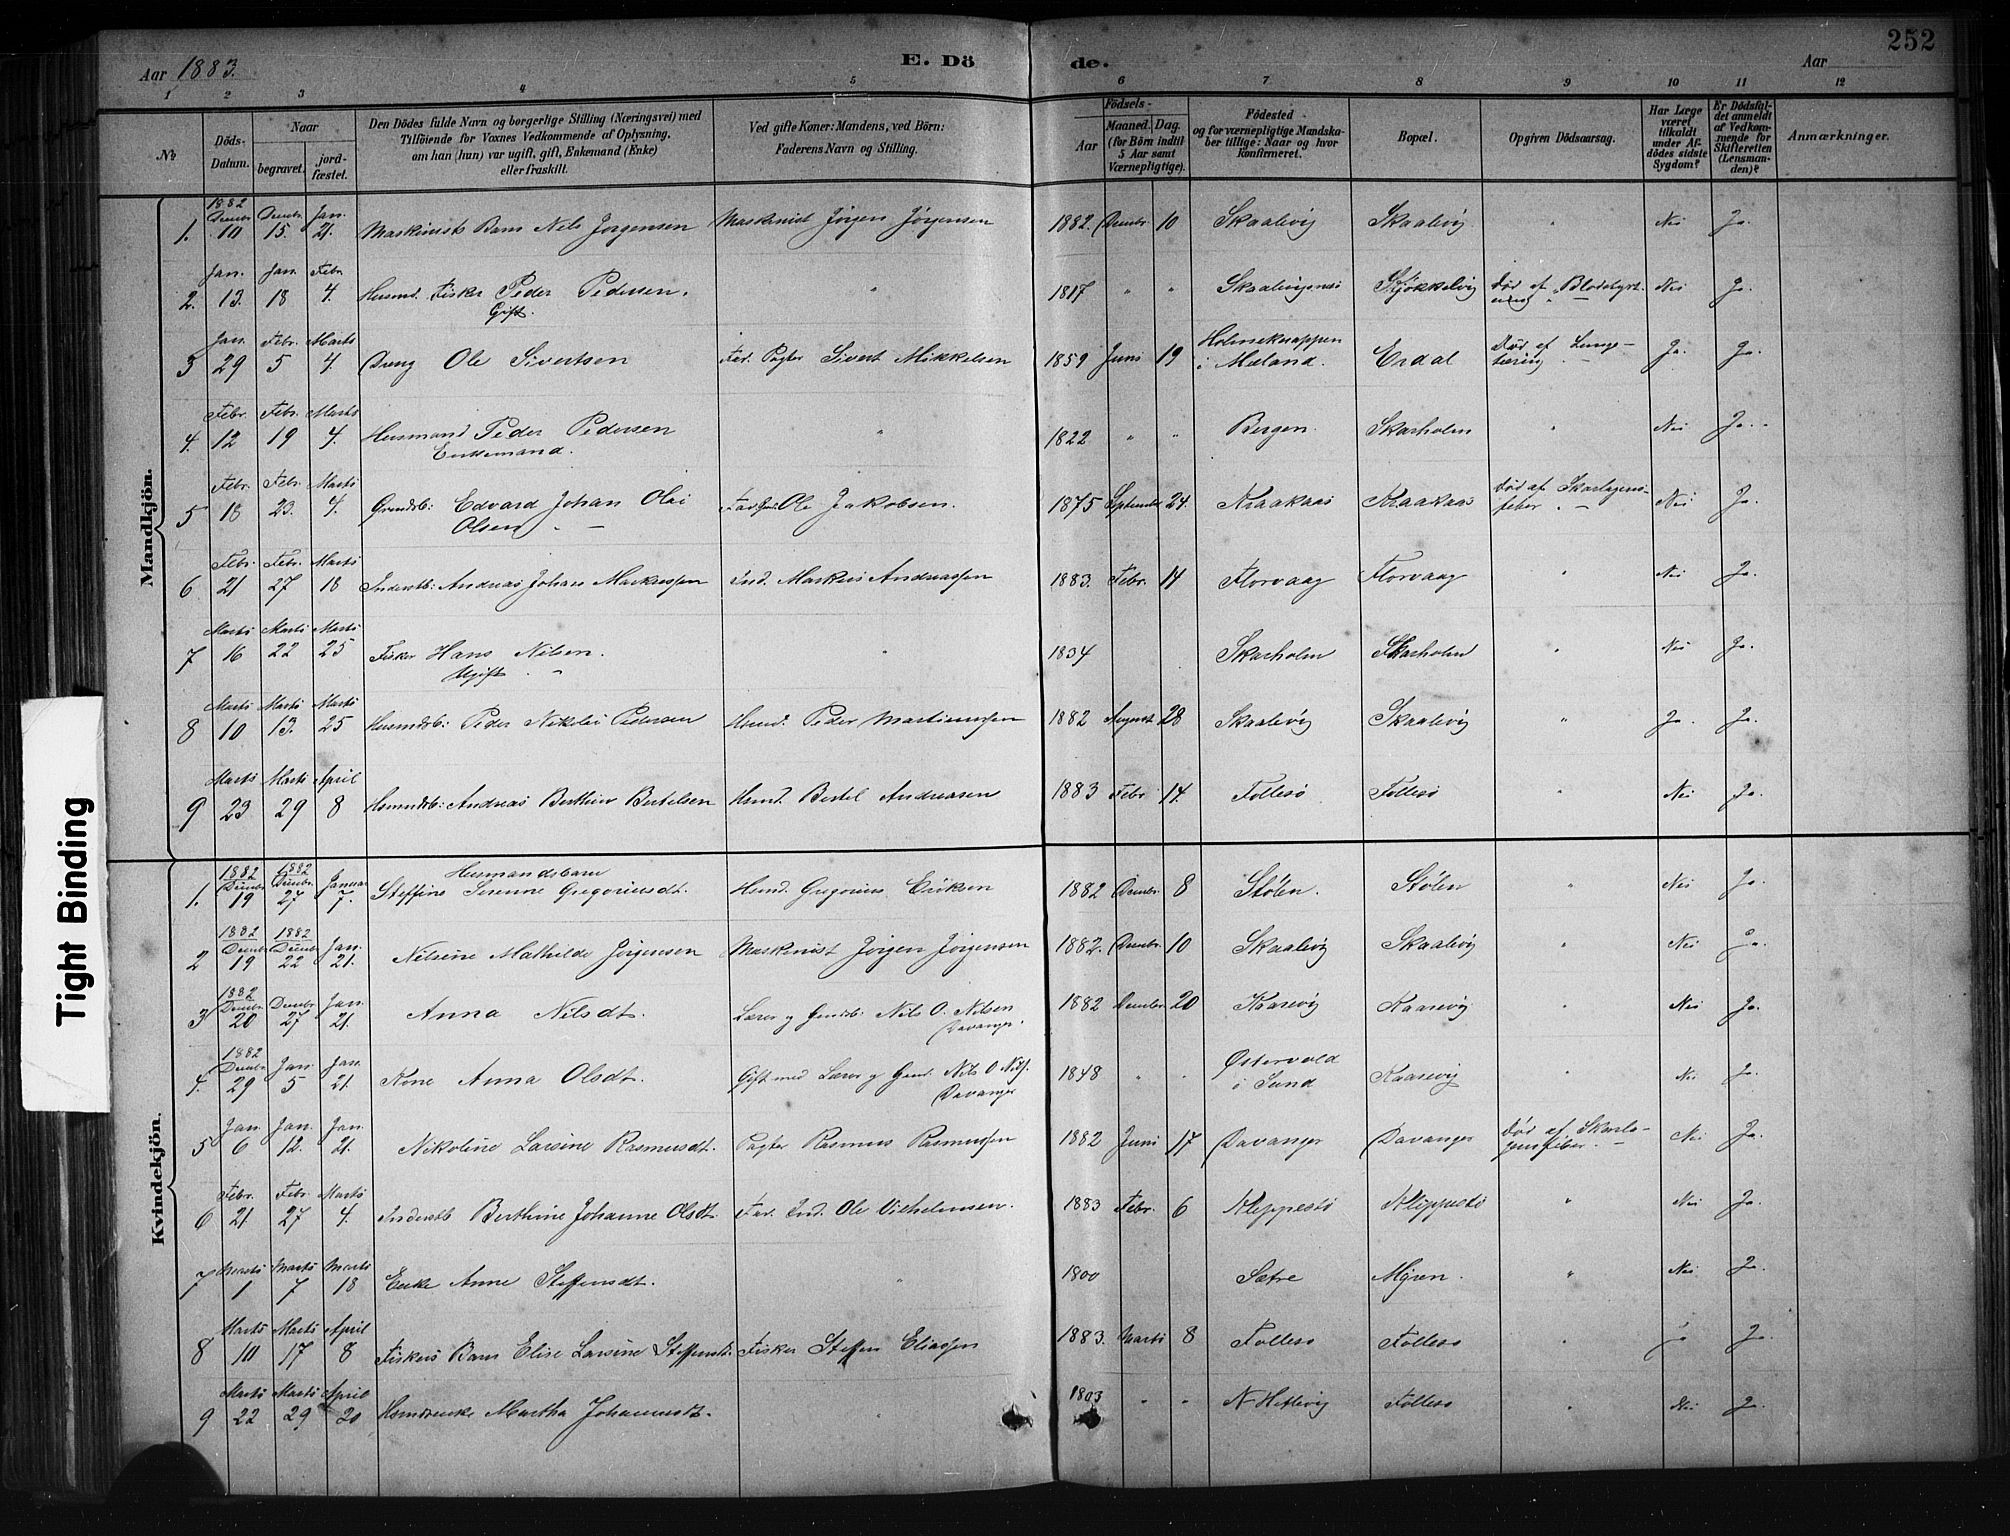 252
Aar 1883. E. Döde. Aar
1 2 3 4 5 6 7 8 9 10 11 12
No Döds-Datum. Naar begravet. jordfæstet. Den Dödes fulde Navn og borgerlige Stilling (Næringsvei) med Tilföiende for Voxnes Vedkommende af Oplysning, om han (hun) var ugift, gift, Enkemand (Enke) eller fraskilt. Ved gifte Koner: Mandens, ved Börn: Faderens Navn og Stilling. Födsels- Aar Maaned. Dag. (for Börn indtil 5 Aar samt Værnepligtige). Födested og for værnepligtige Mandskaber tillige: Naar og hvor konfirmeret. Bopæl. Opgiven Dödsaarsag. Har Læge været tilkaldt under Afdödes sidste Sygdom? Er Dödsfaldet anmeldt af Vedkommende for Skifteretten (Lensmanden)? Anmærkninger.
Mandkjön.
1. 1882 Decmbr. 10 Decmbr. 15. Jan. 21. Maskinists Barn Nils Jørgensen Maskinist Jørgen Jørgensen 1882. Decmbr. 10 Skaalevig Skaalevig " Nei Ja.
2. Jan. 13. Jan. 18 Febr. 4. Husmd. Fisker Peder Pedersen. Gift. " 1817 " " Skaalevigenæs Skjøkkelvig Død af Blodstyrtning Nei Ja.
3 Jan. 29 Febr. 5 Marts 4. Dreng Ole Sivertsen Fad. Pagter Sivert Mikkelsen 1859 Juni 19 Holmeknappen i Mæland. Erdal Død af Lungetæring Ja. Ja.
4. Febr. 12 Febr. 19 Marts 4. Husmand Peder Pedersen Enkemand. " 1822 " " Bergen. Skarholm " Nei Ja.
5 Febr. 18 Febr. 23. Marts 4. Grmdsb: Edvard Johan Olai Olsen Fad. Gmd: Ole Jakobsen. 1875 September 24. Kraakaas Kraakaas Død af Skarlagensfeber Nei Ja.
6 Febr. 21 Febr. 27 Marts 18 Inderstb: Andreas Johan Markussen Ind. Markus Andreassen 1883. Febr. 14 Florvaag Florvaag " Nei Ja.
7 Marts 16 Marts 22 Marts 25 Fisker Hans Nilsen. Ugift " 1834 Skarholm Skarholm " Nei Ja.
8 Marts 10 Marts 13. Marts 25 Husmdsb: Peder Nikolai Pedersen Hsmd. Peder Martinussen 1882 August 28 Skaalevig Skaalevig " Ja. Ja.
9 Marts 23 Marts 29 April 8 Hsmndsb: Andreas Berthin Bertelsen Hsmd. Bertel Andreasen 1883 Febr 14. Follesø Follesø " Nei Ja.
Kvindekjön.
1. 1882 Decmbr. 19 1882 Decmbr. 27 Januar 7. Husmandsbarn Steffine Serenne Gregoriusdt. Hsmd. Gregorius Eriksen 1882 Decmbr. 8 Stølen. Stølen " Nei Ja.
2 1882 Decmbr 19 1882 Decmbr 22 Jan. 21. Nilsine Mathilde Jørgensen Maskinist Jørgen Jørgensen 1882. Decmbr. 10 Skaalevig Skaalevig " Nei Ja.
3 1882 Decmbr. 20 Decmbr 27 Jan. 21. Anna Nilsdt. Lærer og Gmdsb: Nils O. Nilsen Davanger. 1882 Decmbr 20 Kaarevig Kaarevig " Nei Ja.
4. 1882 Decmbr. 29 Jan. 5 Jan. 21. Kone Anna Olsdt. Gift med Lærer og Gmd. Nils O Nils. Davanger 1848 " " Østervold i Sund Kaarevig " Nei Ja.
5 Jan. 6 Jan. 12. Jan. 21. Nikoline Larsine Rasmusdt. Pagter Rasmus Rasmussen 1882 Juni 17 Davanger Davanger Død af Skarlagensfeber Nei Ja.
6 Febr. 21. Febr. 27 Marts 4. Inderstb Berthine Johanne Olsdt. Fad. Ind. Ole Vilhelmsen. 1883 Febr. 6 Kleppestø Kleppestø " Nei Ja.
7 Marts 1 Marts 7 Marts 18 Enke Anne Steffensdt. " 1800 Sætre Myren. " Nei Ja.
8 Marts 10 Marts 17 April 8 Fiskers Barn Elise Larsine Steffensdt. Fisker Steffen Eliassen 1883. Marts 8 Follesø Follesø Ja.
9 Marts 22 Marts 29 April 20 Hsmdsenke Martha Johannesdt. " 1803 " " N-Hetlevig Follesø " Nei Ja.
Tight Binding